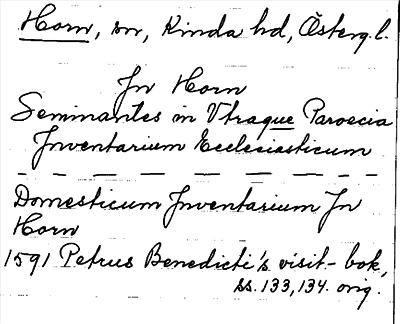 Horn, sn, Kinda hd, Österg.l.
In Horn
Seminantes in Vtraque Paroecia
Inventarium Ecclesiasticum
— — — — — — — — —
Domesticum Inventarium In
Horn
1591 Petrus Benedicti's visit-bok,
ss. 133, 134. orig.